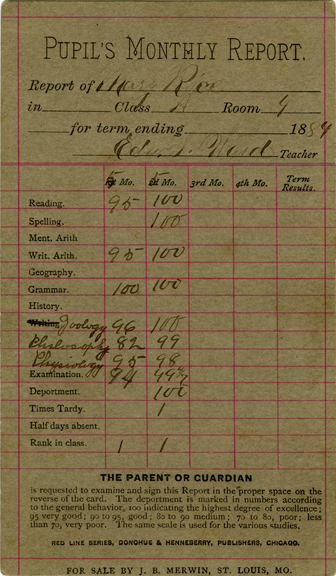 PUPIL'S MONTHLY REPORT.
Report of Mary Rice
in Class A Room 4
for term ending 1889
Edw. Ward Teacher
Mo. Mo. 3rd Mo. 4th Mo. Term Results.
Reading. 95 100
Spelling. 100
Ment. Arith
Writ. Arith. 95 100
Geography.
Grammar. 100 100
History.
Writing Zoology 96 100
Philosophy 82 99
Physiology 95 98
Examination. 94
Deportment. 100
Times Tardy. 1
Half days absent.
Rank in class. 1 1
THE PARENT OR GUARDIAN
is requested to examine and sign this Report in the proper space on the
reverse of the card. The deportment is marked in numbers according
to the general behavior, 100 indicating the highest degree of excellence;
95 very good; 90 to 95, good; 80 to 90 medium; 70 to 80, poor; less
than 70, very poor. The same scale is used for the various studies.
RED LINE SERIES, DONOHUE & HENNEBERRY, PUBLISHERS, CHICAGO.
FOR SALE BY J. B. MERWIN, ST. LOUIS, MO.